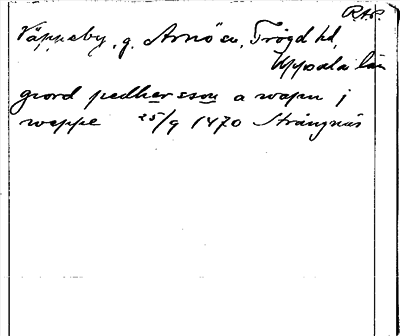 RAP.
Väppeby, g. Arnö sn, Trögd hd,
Uppsala län
giord pedhersson a wapn j
weppe 25/9 1470 Strängnäs